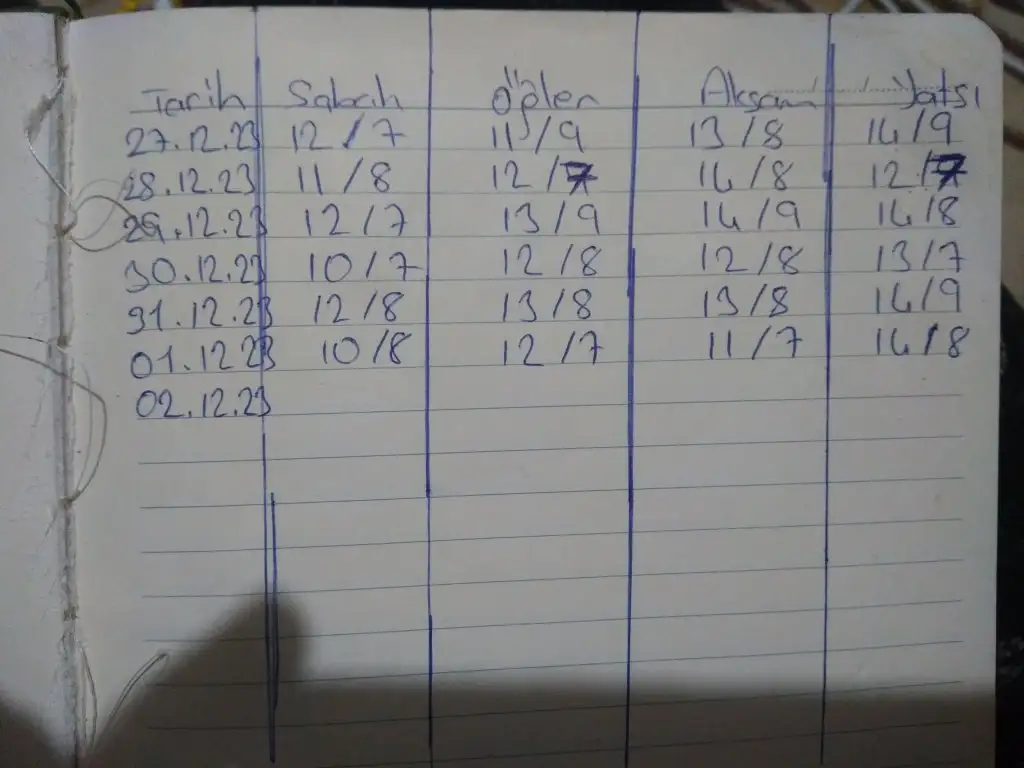 Tarih Sabah Öğlen Akşam Yatsı
27.12.23 12/7 11/9 13/8 14/9
28.12.23 11/8 12/7 14/8 12/7
29.12.23 12/7 13/9 14/9 14/8
30.12.23 10/7 12/8 12/8 13/7
31.12.23 12/8 13/8 13/8 14/9
01.12.23 10/8 12/7 11/7 14/8
02.12.23